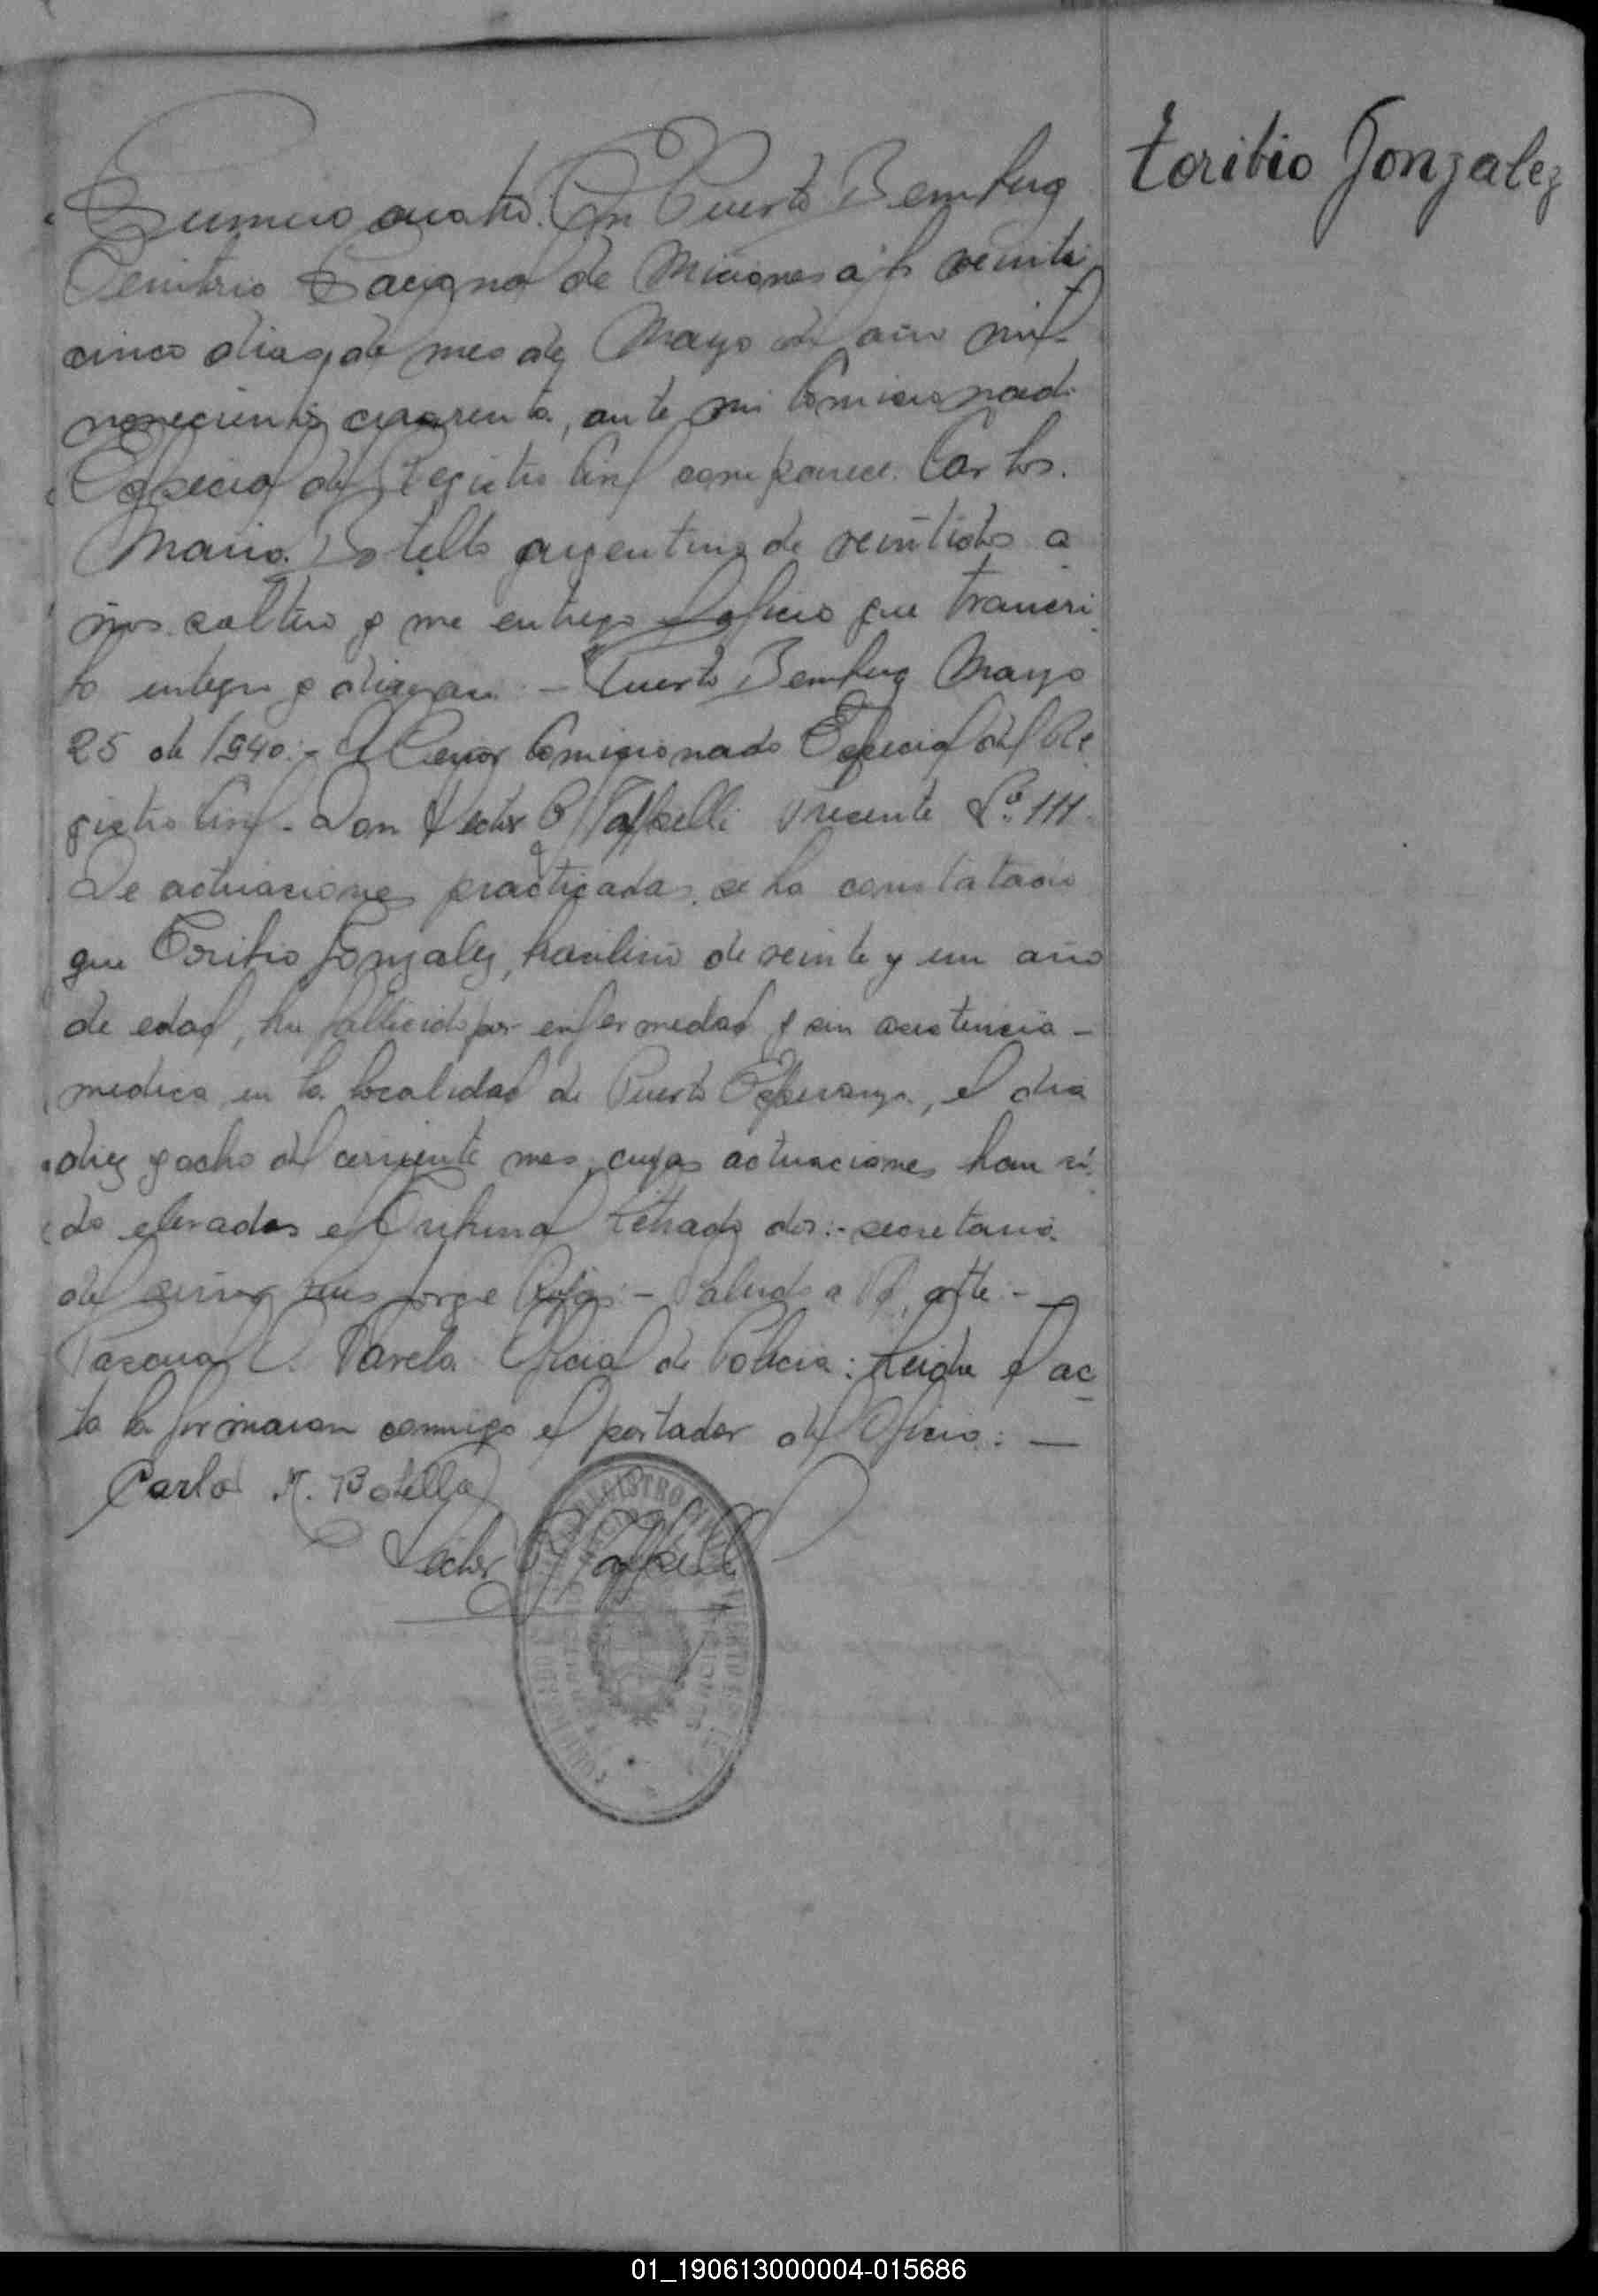 Toribio Gonzalez
Numero cuatro. En Puerto Bemberg
Territorio Nacional de Miciones a los veinti
cinco dias del mes de Mayo del año mil
novecientos cuarenta, ante mi Comicionado
Especial del Registro Civil comparece Carlos
Mario Botello argentino de veintidos a
ños soltero y me entrego el oficio que trancri
bo integro y dicen asi :- "Puerto Bemberg Mayo
25 de 1940:- Al Cenor Comicionado Especial del Re
gistro Civil - Don Hector Raffelli Precente Nº 111.
De actuaciones practicadas, se ha constatado
que Toribio Gonzalez, brasilero de veinte y un año
de edad, ha fallecido por enfermedad y sin asistencia -
medica en la localidad de Puerto Esperanza, el dia
diez y ocho del corriente mes, cuyas actuaciones han si
do elevadas al Tribunal Letrado dos:- secretaria
del señor Luis Jorge Rojas:- Saludo a Vd. atte:-
Pascual C. Varela Oficial de Policia: Leida el ac
ta la firmaron conmigo el portador del Oficio: —
Carlos M. Botello
Hector Raffelli
REGISTRO CIVIL
01_190613000004-015686